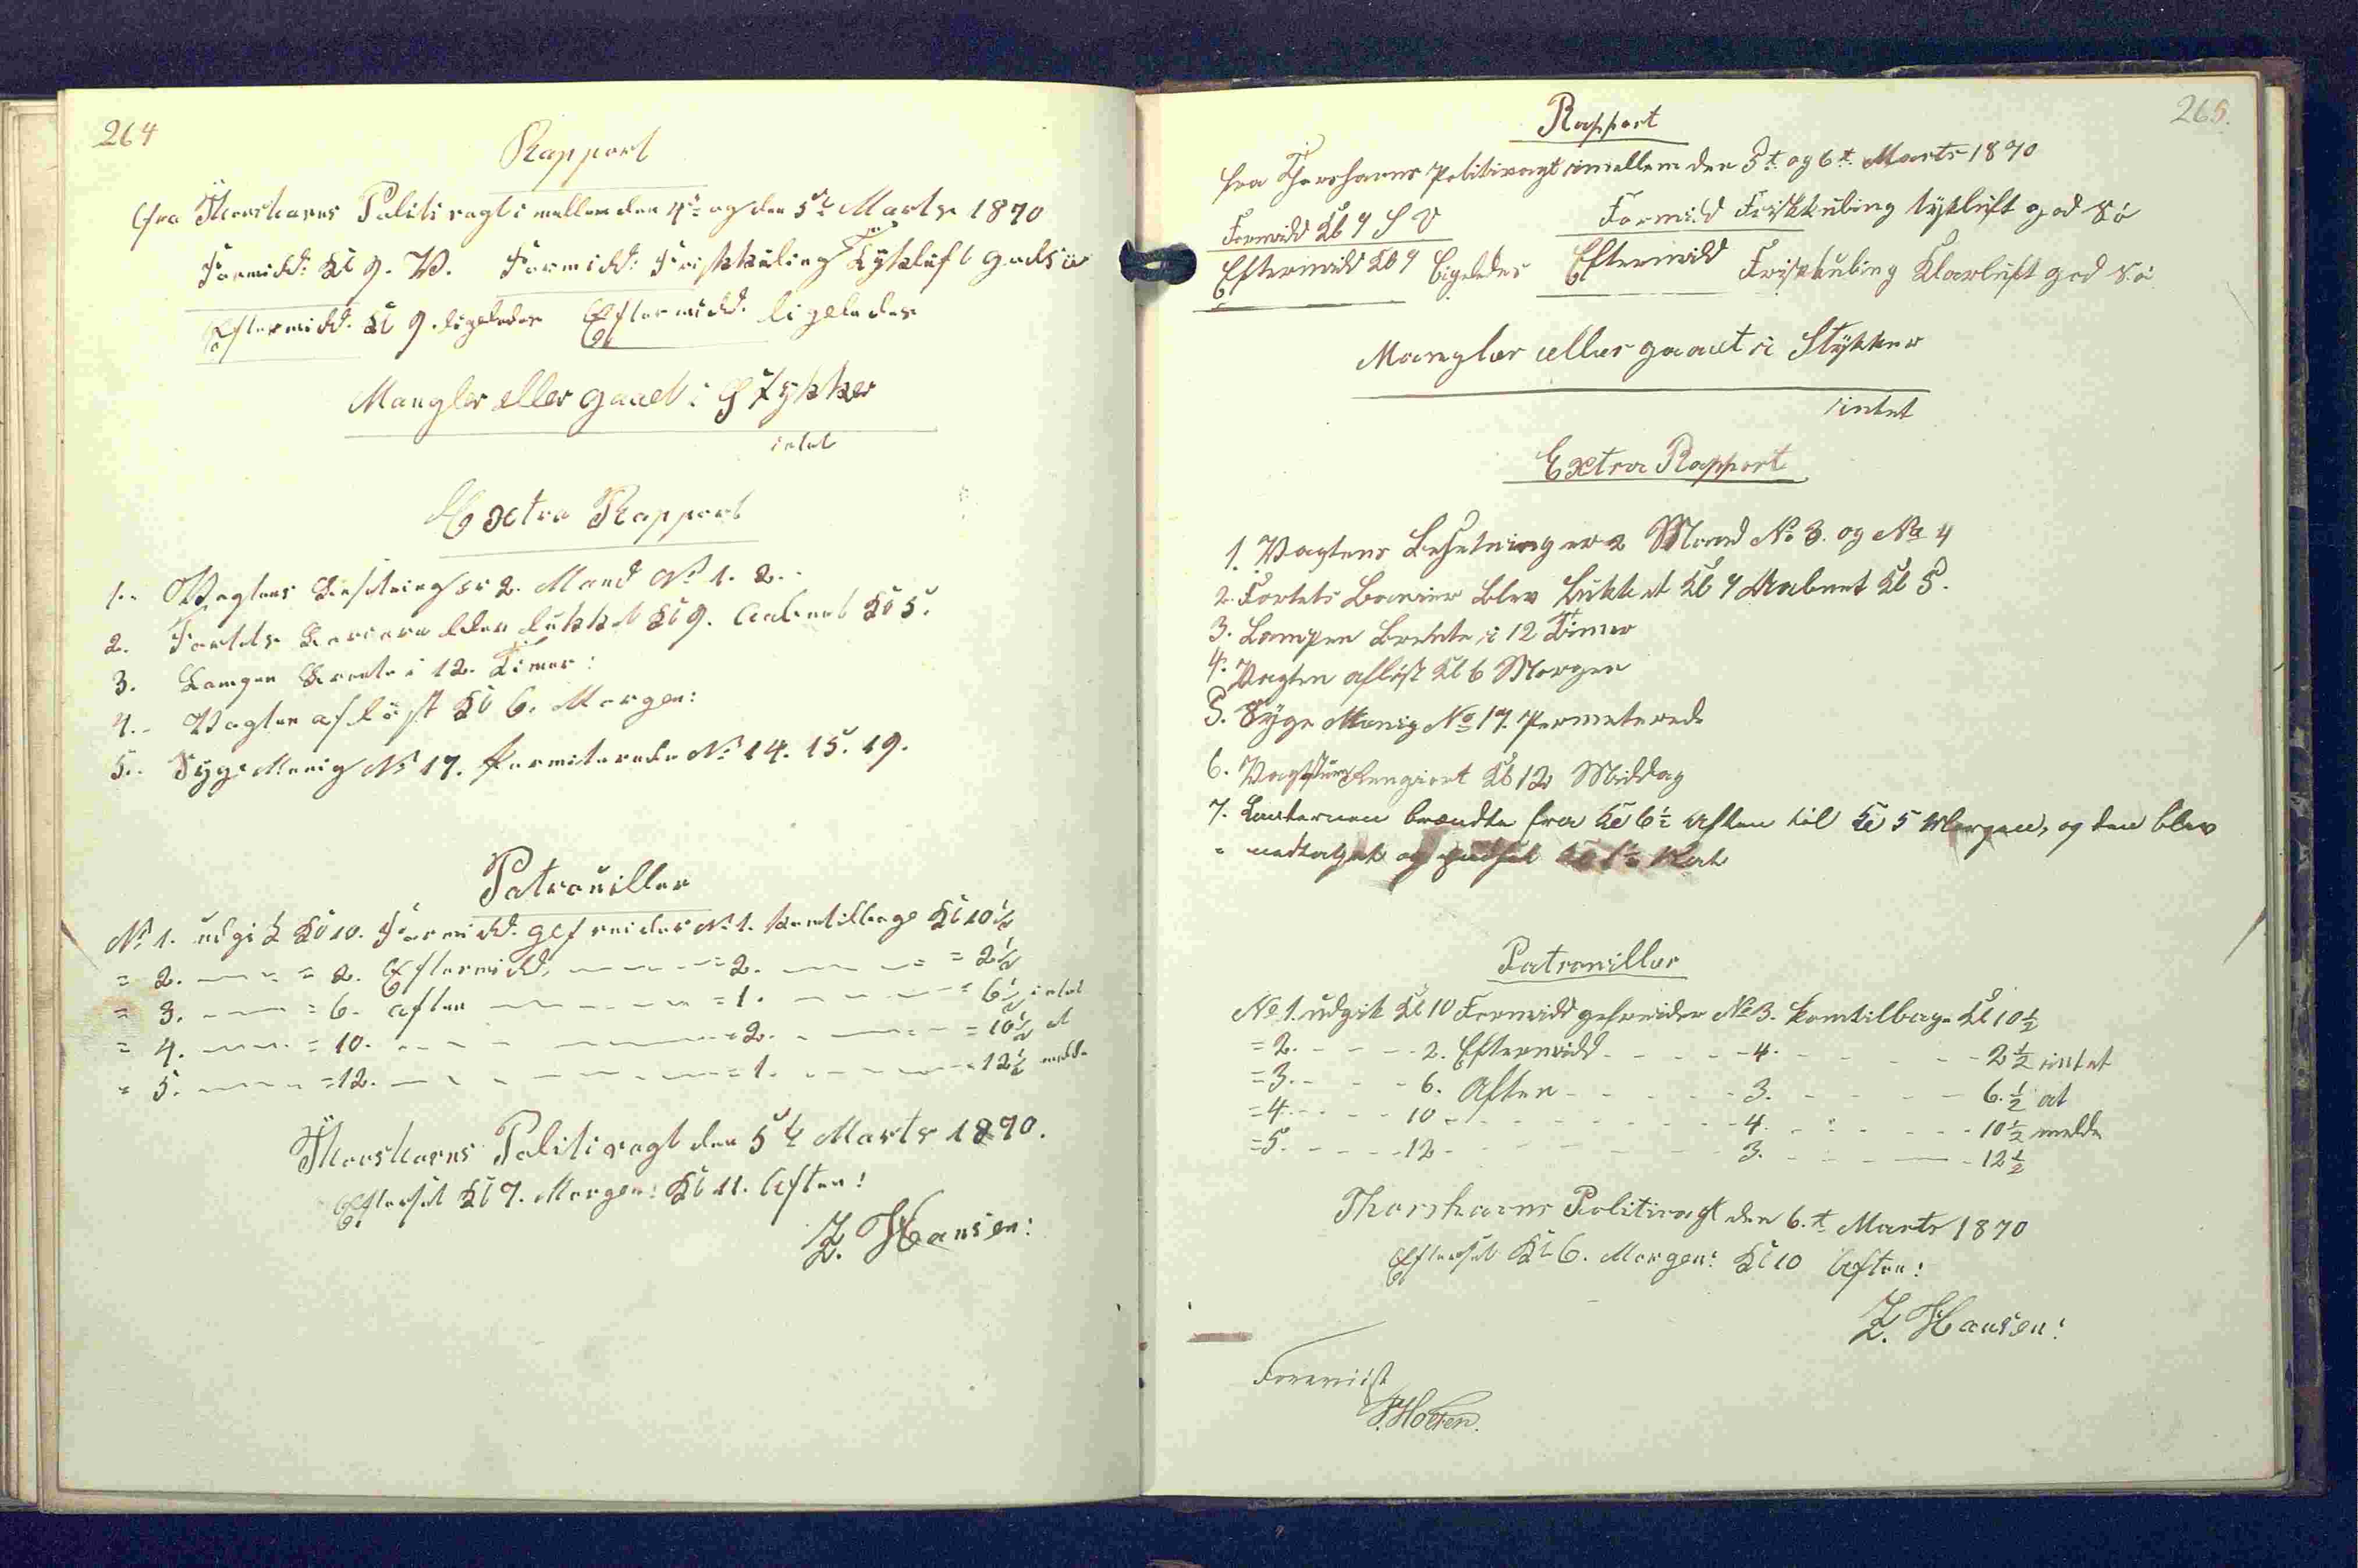 264
Rapport
fra Thorshavns Politivagt imellem den 4de og den 5te Marts 1870
Formidd: Kl 9. V. Formidd: Friskkuling Tykluft god sö
Eftermidd. Kl 9. ligeledes Eftermidd. ligeledes
Mangler eller gaaet i Stykker
intet
Extra Rapport
1. Vagtens Besetning er 2. Mand No 1. 2.
2. Fortets Barriere blev lukket Kl 9. Aabnet Kl 5.
3. Lampen Brente i 12. Timer:
4. Vagten aflöst Kl 6. Morgen:
5. Syge Menig No 17. Permiterede No 14. 15. 19.
Patrouiller
No 1. udgik Kl 10. Formidd. gefreider No 1. kom tilbage Kl 10½
= 2. = 2. Eftermidd. = 2. = 2½
= 3. = 6. Aften = 1. = 6½ intet
= 4. = 10. = 2. = 10½ at
= 5. = 12. = 1. = 12½ melde
Thorshavns Politivagt den 5te Marts 1870.
Efterset Kl 7. Morgen: Kl 11. Aften:
Z. Hansen:
265.
Rapport
fra Thorshavns Politivagt imellem den 5t og 6t Marts 1870
Formidd Kl 9 S V Formidd Friskkuling tykluft god Sö
Eftermidd Kl 9 ligeledes Eftermidd Friskkuling Klarluft god Sö
Mangler eller gaaet i Stykker
intet
Extra Rapport
1. Vagtens Besetning er 2 Mand No 3. og No 4
2. Fortets Barrier blev Lukket Kl 9 Aabnet Kl 5.
3. Lampen Brente i 12 Timer
4. Vagten aflöst Kl 6 Morgen
5. Syge Menig No 17. Permeterede
6. Rengiort Kl 12 Middag
7. Lanternen brændte fra Kl 6½ Aften til Kl 5 Morgen, og den blev
" nedtaget og pudset
Patrouiller
No 1. udgik Kl 10 Formidd gefreider No 3. kom tilbage Kl 10½
= 2. 2. Eftermidd 4. 2½ intet
= 3. 6. Aften 3. 6.½ at
= 4. 10 4. 10½ melde
= 5. 12 3. 12½
Thorshavns Politivagt den 6.t Marts 1870
Efterset Kl 6. Morgen: Kl 10 Aften:
Z. Hansen:
Foreviist